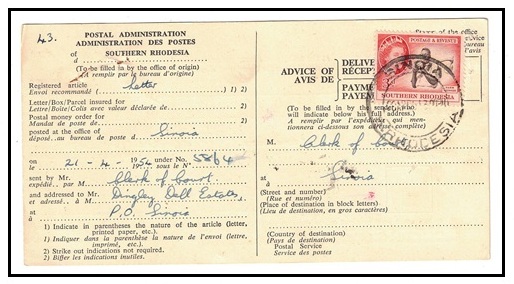 43.
POSTAL ADMINISTRATION
ADMINISTRATION DES POSTES
of
SOUTHERN RHODESIA
d
(To be filled in by the office of origin)
(A remplir par le bureau d'origine)
Registered article letter
Envoi recommandé 1) 2)
Letter/Box/Parcel insured for
Lettre/Boîte/Colis avec valeur déclarée de 2)
Postal money order for
Mandat de poste de 2)
posted at the office of
déposé au bureau de poste d Sinoia
on
le 21 - 4 - 1954 under No. 58/4
sous le No
sent by Mr. Clerk of Court
expédié par M
and addressed to Mr. Dingley Dell Estates,
et adressé à M
at P.O. Sinoia
à
1) Indicate in parentheses the nature of the article (letter,
printed paper, etc.)
1) Indiquer dans la parenthèse la nature de l'envoi (lettre,
imprimé, etc.)
2) Strike out indications not required.
2) Biffer les indications inutiles.
of the office
ADVICE OF
AVIS DE
DELIVE
RÉCEP
PAYM
PAYEM
POSTAGE & REVENUE
SOUTHERN RHODESIA
SINOIA
RHODESIA
(To be filled in by the sender, who
will indicate below his full address.)
(A remplir par l'expéditeur, qui men-
tionnera ci-dessous son adresse complète)
M. Clerk of Court
at
à Sinoia
(Street and number)
(Rue et numéro)
(Place of destination in block letters)
(Lieu de destination, en gros caractères)
(Country of destination)
(Pays de destination)
Postal Service
Service des postes